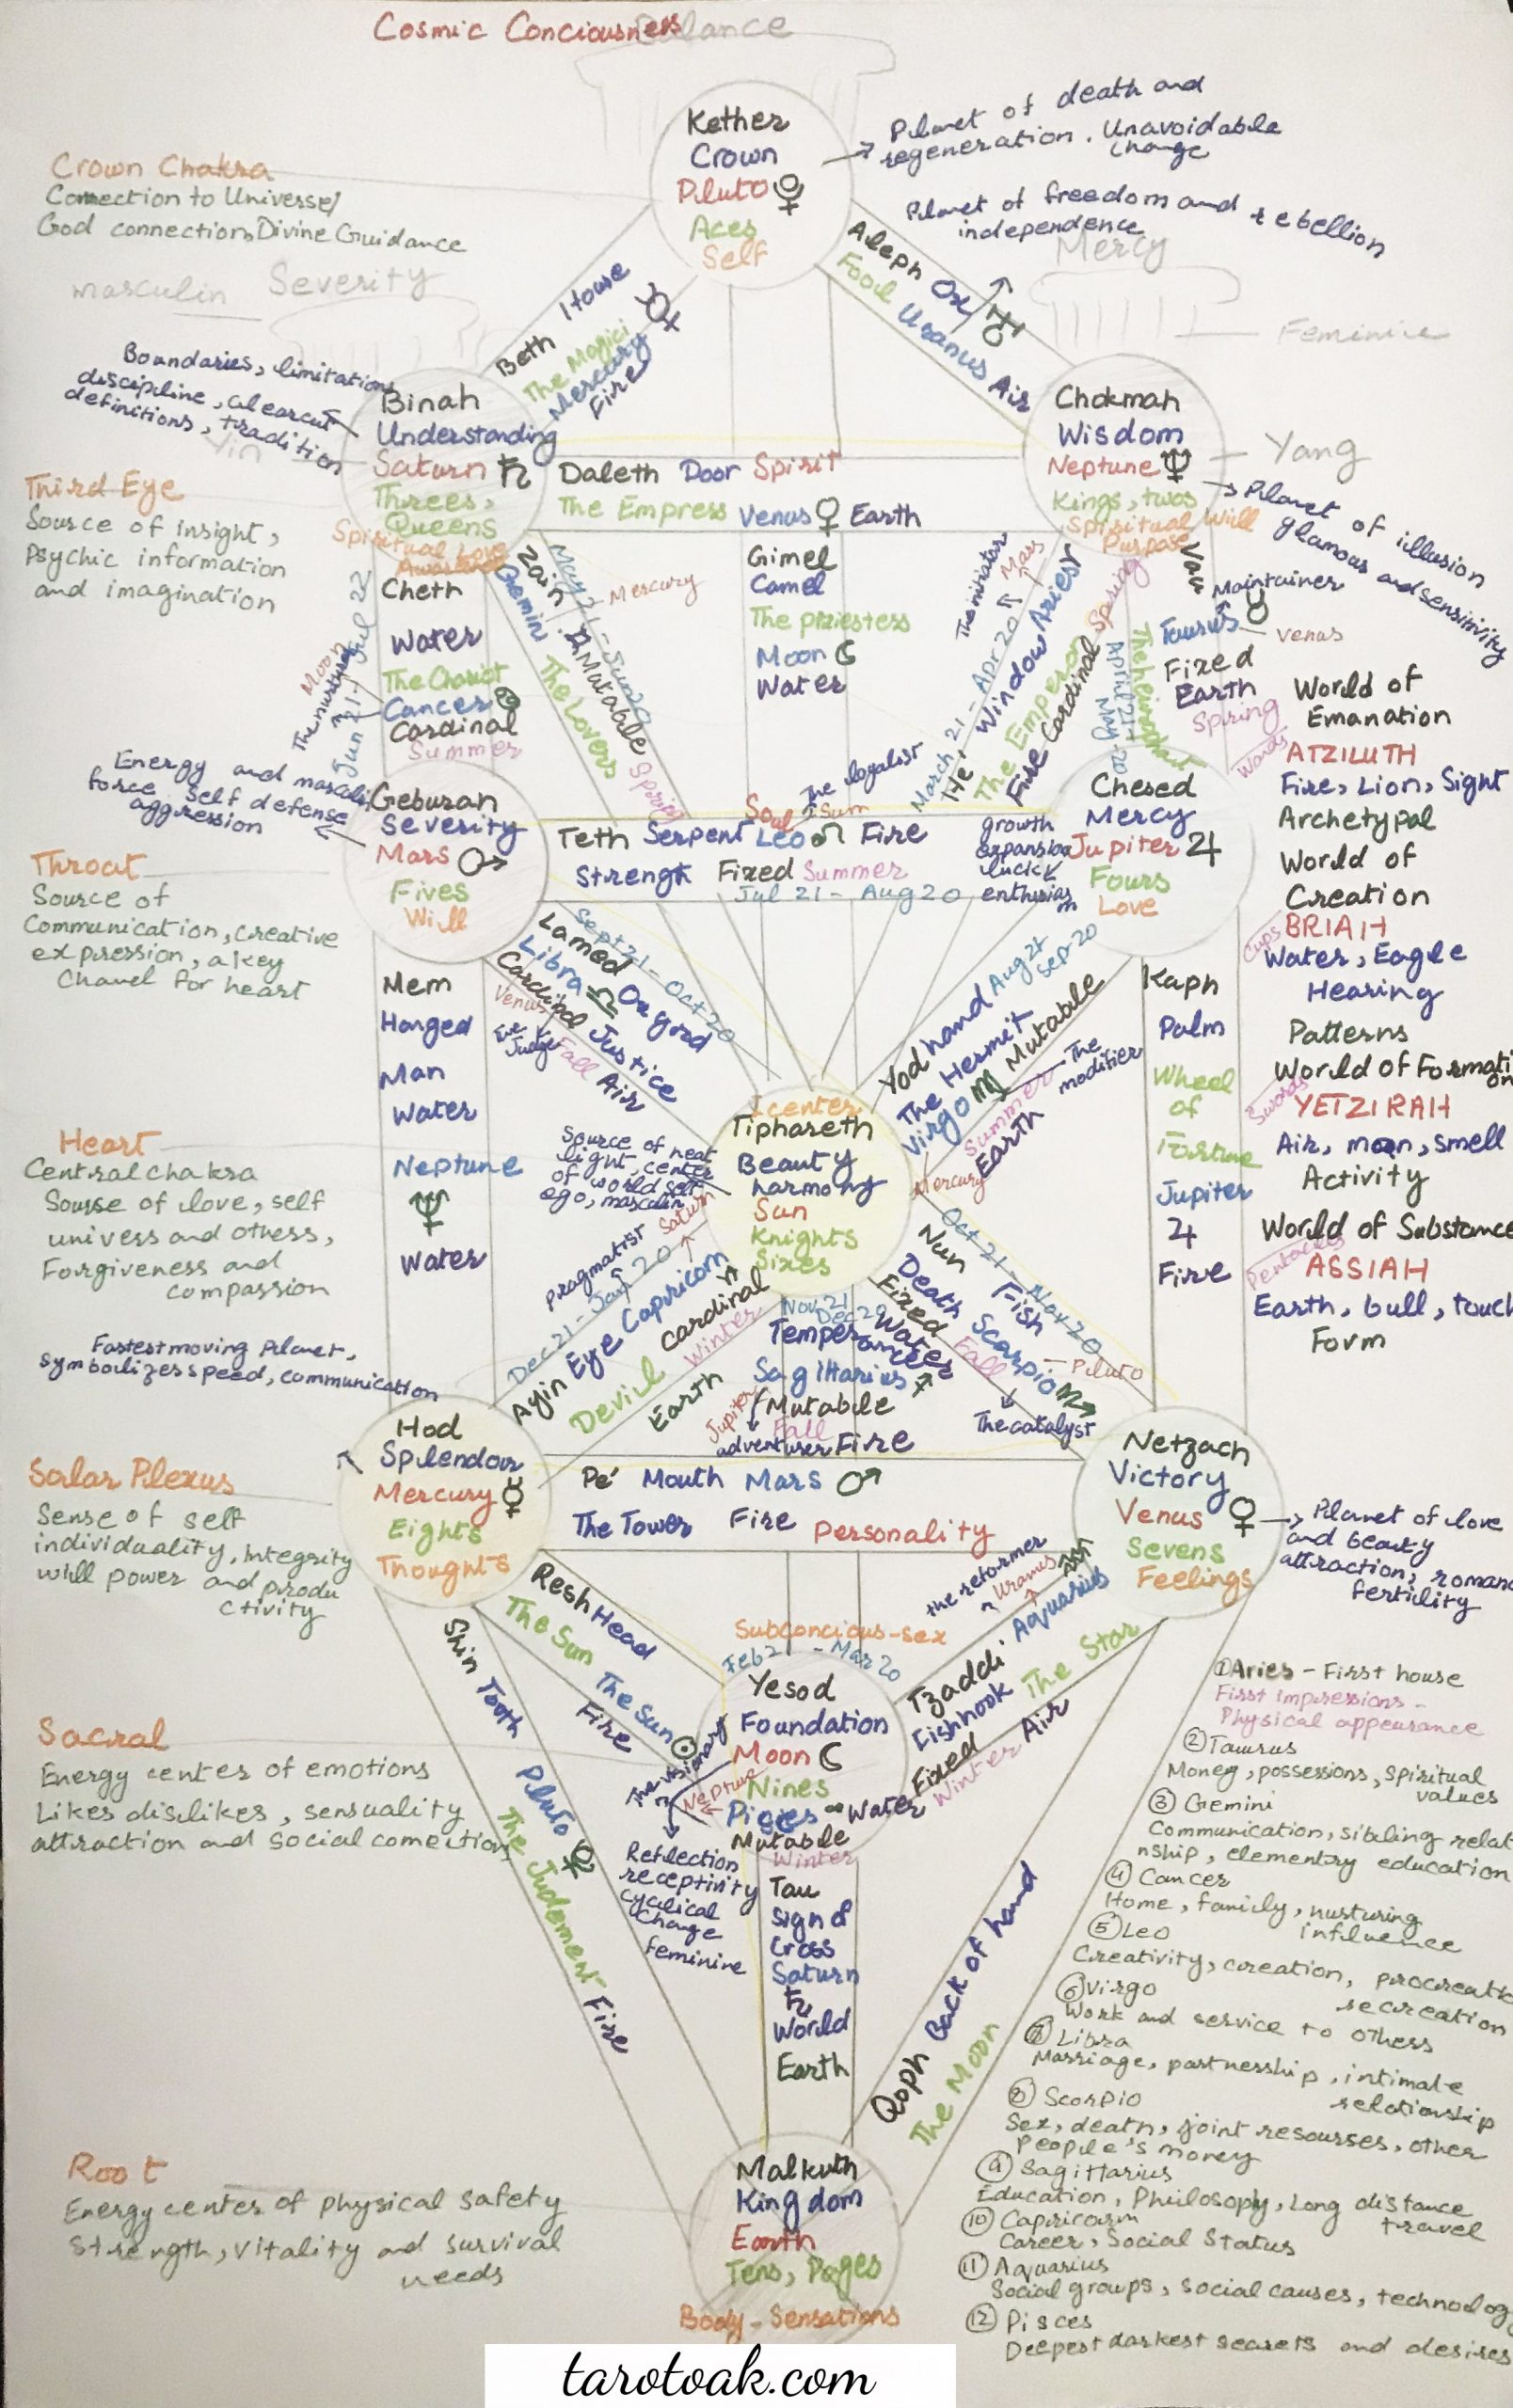 Cosmic Conciousness
Balance
Kether
Crown
Pluto ♇
Aces
Self
Planet of death and
regeneration. Unavoidable
change
Planet of freedom and rebellion
independence
Crown Chakra
Connection to Universe/
God connection, Divine Guidance
masculin
Severity
Mercy
Feminine
Beth House
The Magici
Mercury
Fire
☿
Aleph Ox
Fool Uranus Air
♅
Boundaries, limitations
discipline, clearcut
definitions, tradition
Yin
Binah
Understanding
Saturn ♄
Threes,
Queens
Spiritual Love
Awareness
Chokmah
Wisdom
Neptune ♆
Kings, twos
Spiritual Will
Purpose
Yang
Planet of illusion
glamous and sensitivity
Daleth Door Spirit
The Empress Venus ♀ Earth
Third Eye
Source of insight,
Psychic information
and imagination
Cheth
Water
The Chariot
Cancer ♋
Cardinal
Summer
Moon
The nurturer
Jun 21 - Jul 22
Zain
May 21 - Jun 20
Gemini ♊ Mutable Spring
The Lovers
Mercury
Gimel
Camel
The priestess
Moon ☾
Water
The initiator
Mars
March 21 - Apr 20
He, Window Aries ♈
The Emperor
Fire Cardinal Spring
Vav
Maintainer
Taurus ♉
Venus
Fixed
Earth
Spring
The heirophant
April 21 -
May - 20
World of
Emanation
Wands
ATZILUTH
Fire, Lion, Sight
Archetypal
World of
Creation
Cups
BRIAH
Water, Eagle
Hearing
Patterns
World of Formation
Swords
YETZIRAH
Air, man, smell
Activity
World of Substance
Pentacles
ASSIAH
Earth, bull, touch
Form
Energy and masculin
force, Self defense
aggression
Geburah
Severity
Mars ♂
Fives
Will
Soul
The loyalist
Sun
Teth Serpent Leo ♌ Fire
Strength Fixed Summer
Jul 21 - Aug 20
growth
expansion
luck
enthusiasm
Chesed
Mercy
Jupiter ♃
Fours
Love
Throat
Source of
Communication, creative
expression, a key
Chanel for heart
Mem
Hanged
Man
Water
Neptune
♆
Water
Sept 21 - Oct 20
Lamed Ox goad
Libra ♎ Justice
Cardinal
Air
Venus
The
Judge
Fall
Yod hand Aug 21
Sep-20
The Hermit
Virgo ♍ Mutable
Summer
Earth
The
modifier
Mercury
Kaph
Palm
Wheel
of
Fortune
Jupiter
♃
Fire
Heart
Central chakra
Sourse of love, self
univess and others,
Forgiveness and
compassion
I center
Tiphareth
Beauty
harmony
Sun
Knights
Sixes
Source of heat
light, center
of world self
ego, masculin
Pragmatist
Saturn
Dec 21 - Jan 20
Ayin Eye Capricorn
cardinal
Devil
Winter
Earth
Nov 21
Dec 20
Temperance
Sagittarius ♐
Mutable
Fall
Fire
Jupiter
adventurer
Oct 21 - Nov 20
Nun Fish
Death Scorpio ♏
Fixed
Water
Fall
Pluto
The catalyst
Fastest moving Planet,
symbolizes speed, communication
Hod
Splendour
Mercury ☿
Eights
Thoughts
Pe' Mouth Mars ♂
The Tower Fire Personality
Netzach
Victory
Venus ♀
Sevens
Feelings
Planet of love
and beauty
attraction, roman
fertility
Solar Plexus
Sense of self
individuality, Integrity
will power and produ
ctivity
Resh Head
The Sun The Sun ☉
Fire
the reformer
Uranus
Tzaddi Aquarius ♒
Fishhook The Star
Fixed Air
Winter
Subconcious - sex
Feb 21 - Mar 20
Yesod
Foundation
Moon ☾
Nines
Pices Water
Mutable
Winter
The visionary
Neptune
Reflection
receptivity
cyclical
Change
feminine
Shin Tooth Pluto ♇
The Judement Fire
Sacral
Energy center of emotions
Likes dislikes, sensuality
attraction and social conection
Tau
Sign of
Cross
Saturn
♄
World
Earth
Qoph Back of hand
The Moon
① Aries - First house
First impressions -
Physical appearance
② Taurus
Money, possessions, spiritual
values
③ Gemini
Communication, sibling relat
nship, elementry education
④ Cancer
Home, family, nusturing
influence
⑤ Leo
Creativity, creation, procreati
recreation
⑥ Virgo
Work and service to others
⑦ Libra
Marriage, partnership, intimate
relationship
⑧ Scorpio
Sex, death, joint resourses, other
people's money
⑨ Sagittarius
Education, Philosophy, Long distance
travel
⑩ Capricorn
Career, Social Status
⑪ Aquarius
Social groups, social causes, technolog
⑫ Pisces
Deepest darkest secrets and desires
Root
Energy center of physical safety
Strength, vitality and survival
needs
Malkuth
Kingdom
Earth
Tens, Pages
Body - Sensations
tarotoak.com